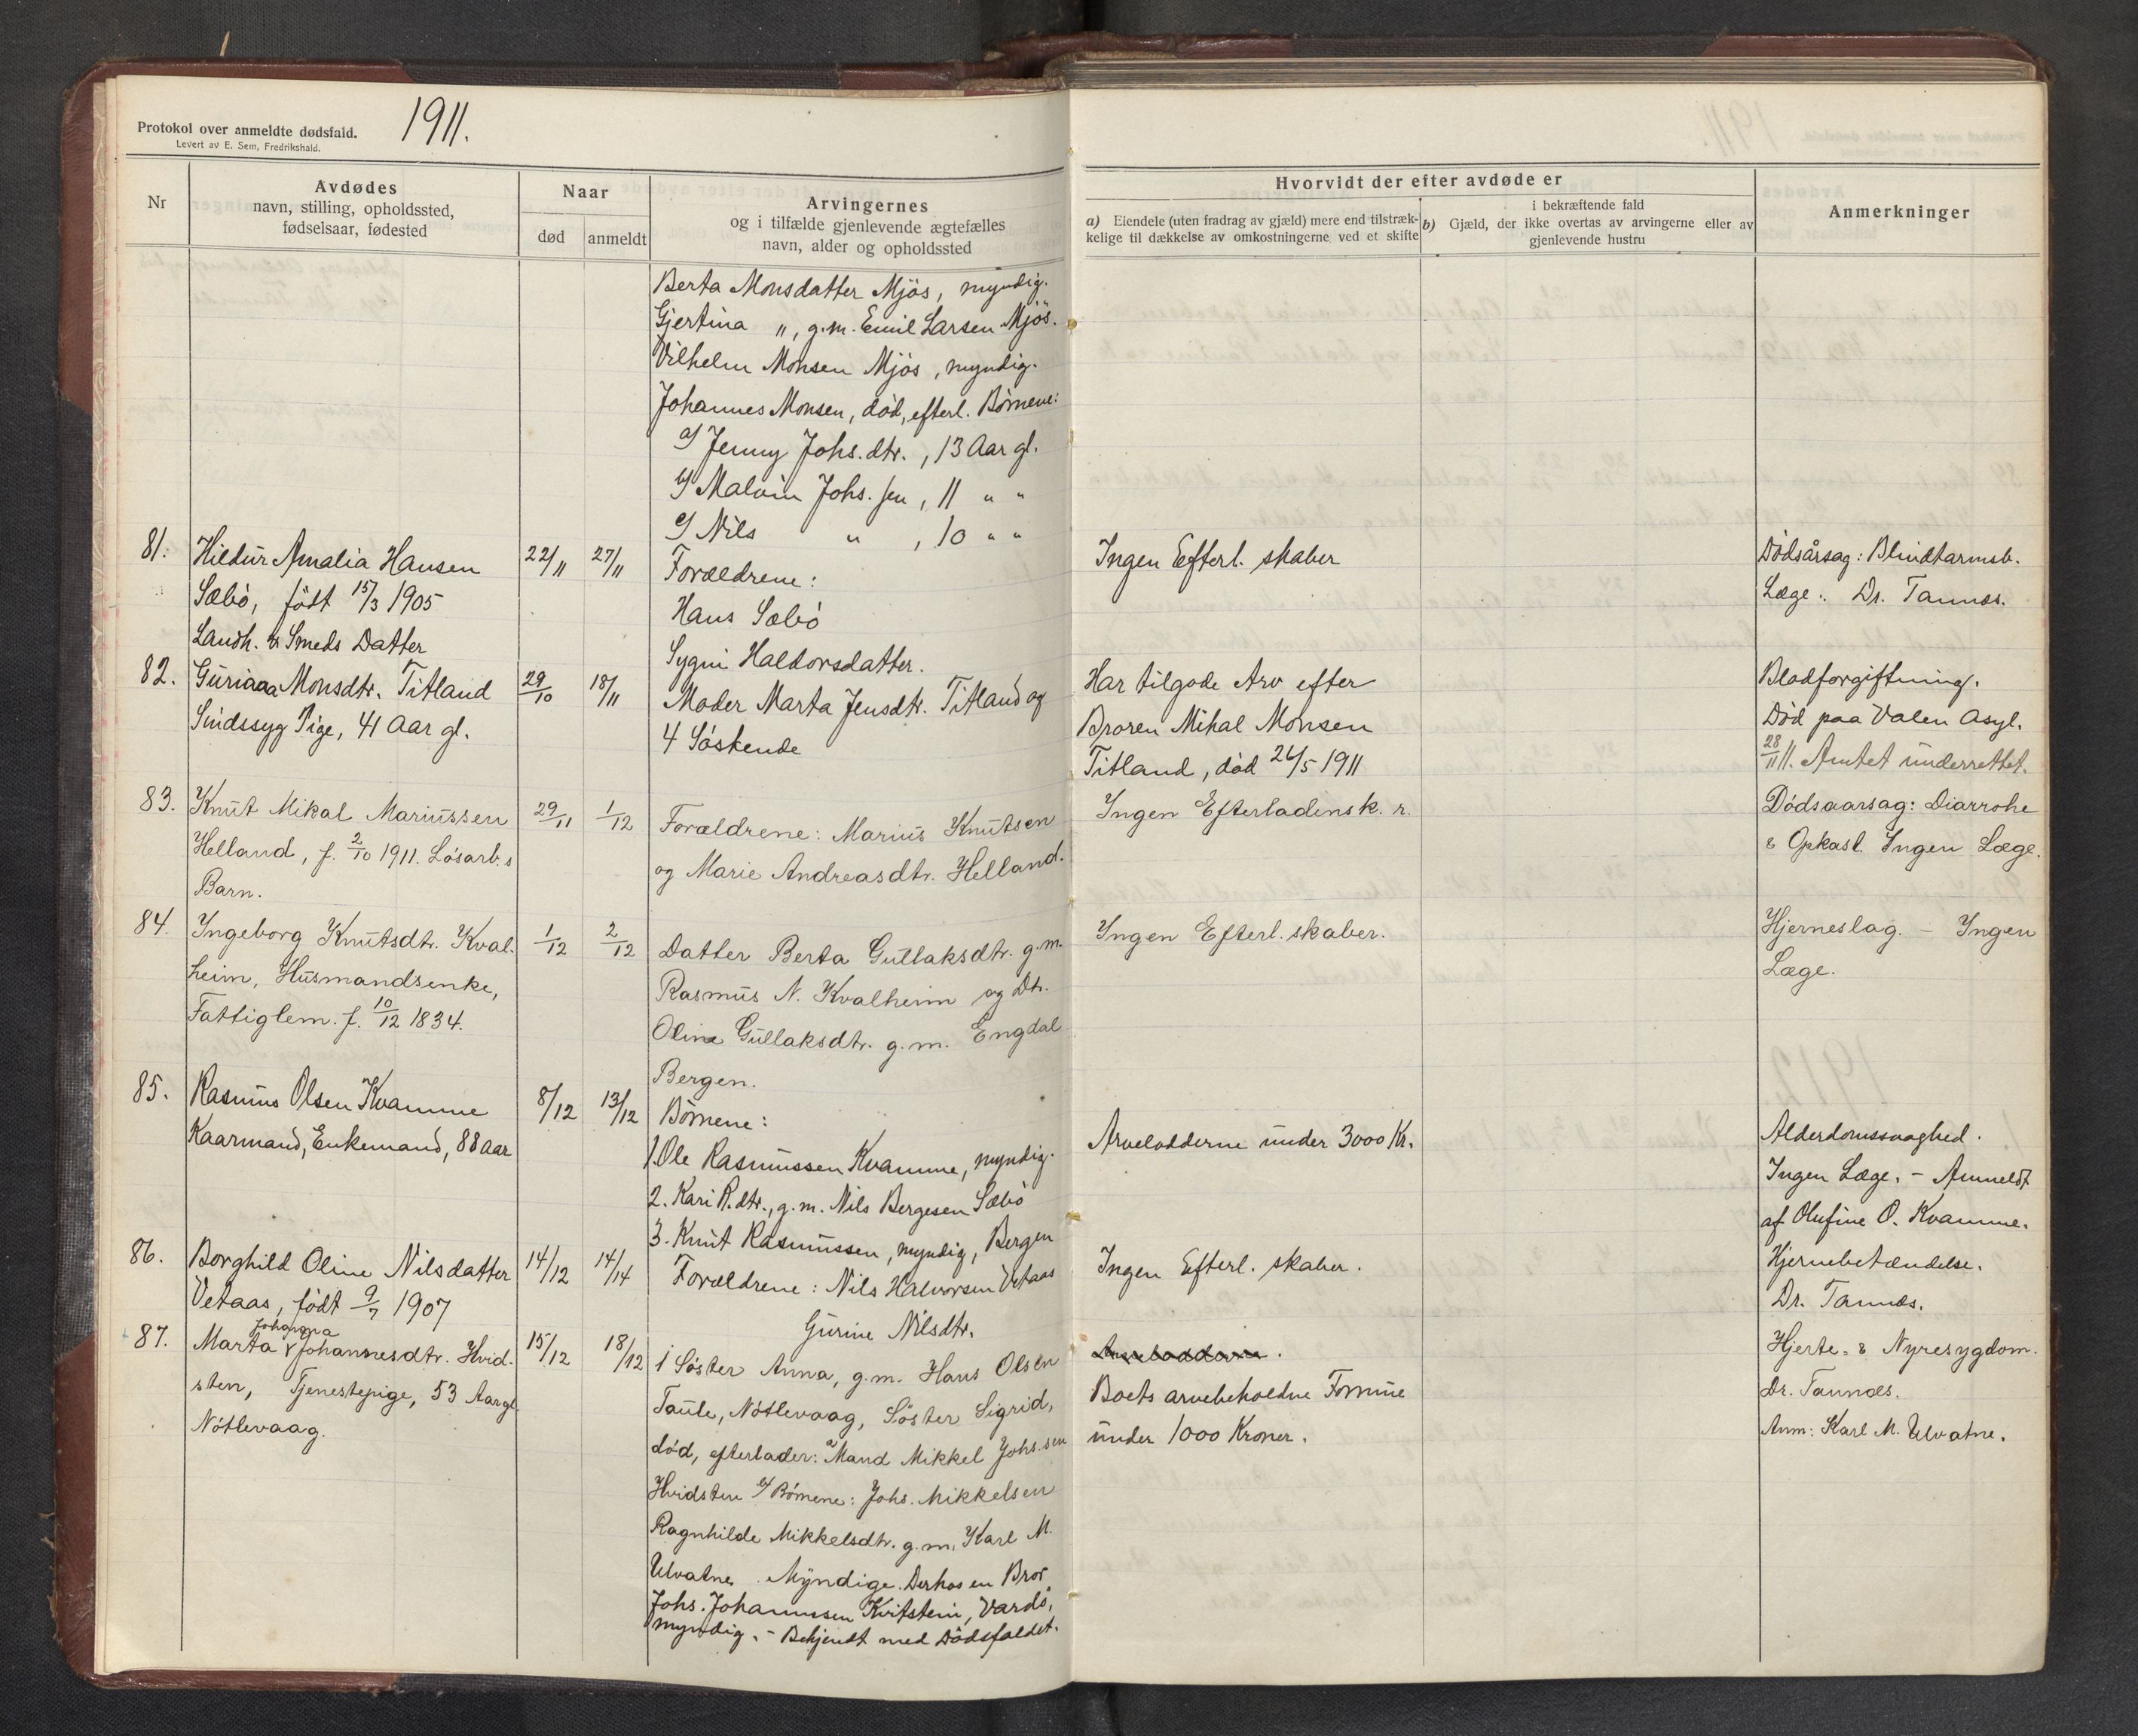 1911.
Protokol over anmeldte dødsfald.
Levert av E. Sem, Fredrikshald.
Nr
Avdødes
navn, stilling, opholdssted,
fødselsaar, fødested
Naar
død
anmeldt
Arvingernes
og i tilfælde gjenlevende ægtefælles
navn, alder og opholdssted
Hvorvidt der efter avdøde er
a) Eiendele (uten fradrag av gjæld) mere end tilstræk-
kelige til dækkelse av omkostningerne ved et skifte
i bekræftende fald
b) Gjæld, der ikke overtas av arvingerne eller av
gjenlevende hustru
Anmerkninger
Berta Monsdatter Mjös, myndig.
Gjertina " , g.m. Emil Larsen Mjös.
Vilhelm Monsen Mjös, myndig.
Johannes Monsen, död, efterl. Börnene:
a/ Jenny Johs.dtr., 13 Aar gl.
b/ Malvin Johs.sen, 11 " "
c/ Nils " , 10 " "
81.
Hildur Amalia Hansen
Sæbö, födt 15/3 1905
Landh. & Smeds Datter
22/11
27/11
Forældrene:
Hans Sæbö
Sygni Haldorsdatter.
Ingen Efterl. skaber
Dödsårsag: Blindtarmsb.
Læge: Dr. Tannæs.
82.
Guriaaa Monsdtr. Titland
Sindssyg Pige, 41 Aar gl.
29/10
18/11
Moder Marta Jensdtr. Titland og
4 Söskende
Har tilgode Arv efter
Broren Mikal Monsen
Titland, död 26/5 1911
Blodforgiftning.
Död paa Valen Asyl.
28/11 11. Amtet underrettet.
83.
Knut Mikal Mariussen
Helland, f. 2/10 1911. Lösarb.s
Barn.
29/11
1/12
Forældrene: Marius Knutsen
og Marie Andreasdtr. Helland.
Ingen Efterladensk. r.
Dödsaarsag: Diarrohe
& Opkast. Ingen Læge.
84.
Ingeborg Knutsdtr. Kval-
heim, Husmandsenke,
Fattiglem. f. 10/12 1834.
1/12
2/12
Datter Berta Gullaksdtr. g.m.
Rasmus N. Kvalheim og Dtr.
Oline Gullaksdtr. g.m. Engdal
Bergen.
Ingen Efterl. skaber.
Hjerneslag. – Ingen
Læge.
85.
Rasmus Olsen Kvamme
Kaarmand, Enkemand, 88 Aar
8/12
13/12
Börnene:
1. Ole Rasmussen Kvamme, myndig.
2. Kari R.dtr., g.m. Nils Bergesen Sæbö
3. Knut Rasmussen, myndig, Bergen
Arvelodderne under 3000 Kr.
Alderdomssvaghed.
Ingen Læge. – Anmeldt
af Olufine O. Kvamme.
86.
Borghild Oline Nilsdatter
Vetaas, födt 9/7 1907
14/12
14/14
Forældrene: Nils Halvorsen Vetaas
Gurine Nilsdtr.
Ingen Efterl. skaber.
Hjernebetændelse.
Dr. Tannæs.
87.
Johanna
Marta Johannesdtr. Hvid-
sten, Tjenestepige, 53 Aar gl.
Nötlevaag.
15/12
18/12
1 Söster Anna, g.m. Hans Olsen
Taule, Nötlevaag, Söster Sigrid,
död, efterlader: a/ Mand Mikkel Johs.sen
Hvidsten b/ Börnene: Johs. Mikkelsen
Ragnhilde Mikkelsdtr. g.m. Karl M.
Ulvatne. Myndige. Derhos en Bror
Johs. Johannessen Kvitstein, Vardö,
myndig. – Bekjendt med Dödsfaldet.
Arvelodderne.
Boets arvebeholdne Formue
under 1000 Kroner.
Hjerte- & Nyresygdom.
Dr. Tannæs.
Anm: Karl M. Ulvatne.